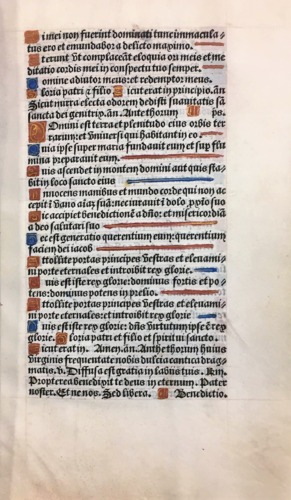 Si mei non fuerint dominati tunc immacula-
tus ero et emundabor a delicto maximo.
Et erunt vt complaceāt eloquia oris mei et me
ditatio cordis mei in conspectu tuo semper.
Domine adiutor meus: et redemptor meus.
Gloria patri et filio Sicut erat in principio. añ
Sicut myrra electa odorem dedisti suauitatis sā
sancta dei genitrix. añ. Ante thorum ps.
Domini est terra et plenitudo eius orbis ter
rarum: et vniuersi qui habitant in eo
Quia ipse super maria fundauit eum et sup flu
mina preparauit eum.
Quis ascendet in montem domini aut quis sta
bit in loco sancto eius
Innocens manibus et mundo corde qui non ac
cepit ī vano aīaȝ suā: nec iurauit ī dolo ꝓxīo suo
Hic accipiet benedictionē a dño: et misericordiā
a deo salutari suo
Hec est generatio querentium eum: querentium
faciem dei iacob
Attollite portas principes vestras et eleuami-
ni porte eternales et introibit rex glorie.
Quis est iste rex glorie: dominus fortis et po
tens: dominus potens in prelio.
Attollite portas principes vestras et eleuami-
ni porte eternales: et introibit rex glorie
Quis est iste rex glorie: dñs virtutum ipse ē rex
glorie. Gloria patri et filio et spiritui sancto.
Sicut erat in. Amen. añ. Ante thorum huius
virginis frequentate nobis dulcia cantica drag-
matis. v. Diffusa est gratia in labiis tuis. Rm.
Propterea benedixit te deus in eternum. Pater
noster. Et ne nos. Sed libera. Benedictio.